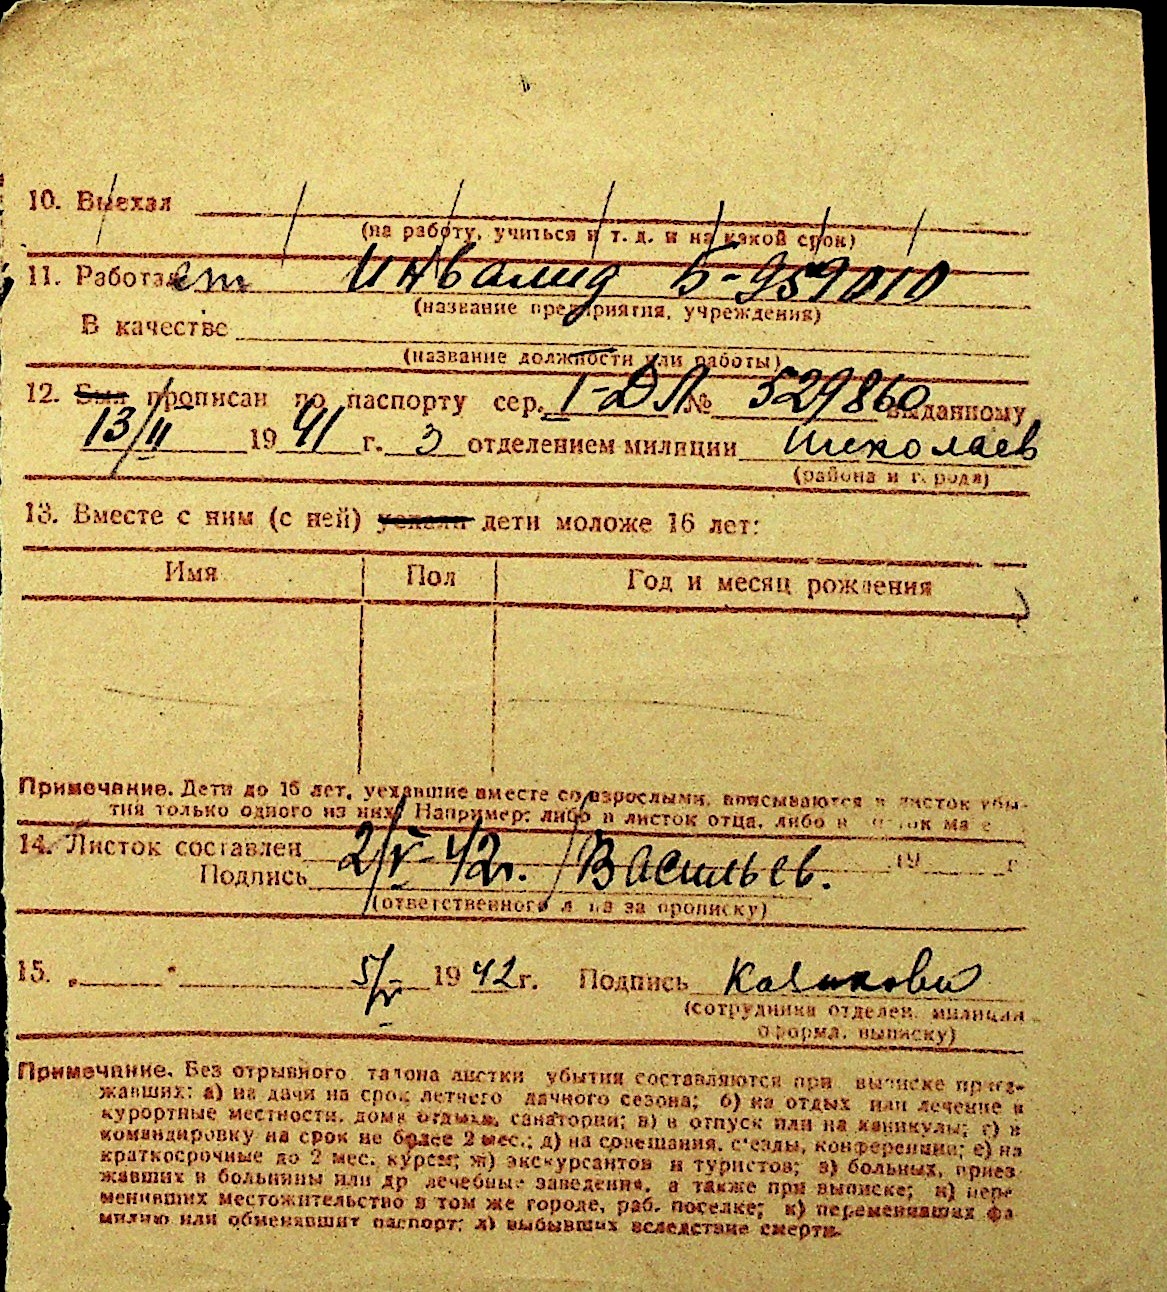 10. Выехал
(на работу, учиться и т. д. и на какой срок)
11. Работает инвалид Б-959010
(название предприятия, учреждения)
В качестве
(название должности или работы)
12. Был прописан по паспорту сер. I-ДЛ № 529860 выданному
13/II 1941 г. 3 отделением милиции Николаев
(района и города)
13. Вместе с ним (с ней) уехали дети моложе 16 лет:
Имя Пол Год и месяц рождения
Примечание. Дети до 16 лет, уехавшие вместе со взрослыми, вписываются в листок убы-
тия только одного из них. Например: либо в листок отца, либо в листок мате
14. Листок составлен 2/V-42г. 19 г
Подпись Васильев.
(ответственного лица за прописку)
15. „ “ 5/V 1942 г. Подпись
(сотрудника отделен. милиции
оформл. выписку)
Примечание. Без отрывного талона листки убытия составляются при выписке приез-
жавших: а) на дачи на срок летнего дачного сезона; б) на отдых или лечение в
курортные местности, дома отдыха, санатории; в) в отпуск или на каникулы; г) в
командировку на срок не более 2 мес.; д) на совещания, с'езды, конференции; е) на
краткосрочные до 2 мес. курсы; ж) экскурсантов и туристов; з) больных, приез
жавших в больницы или др лечебные заведения, а также при выписке; и) пере
менивших местожительство в том же городе, раб. поселке; к) переменивших фа
милию или обменявших паспорт; л) выбывших вследствие смерти.